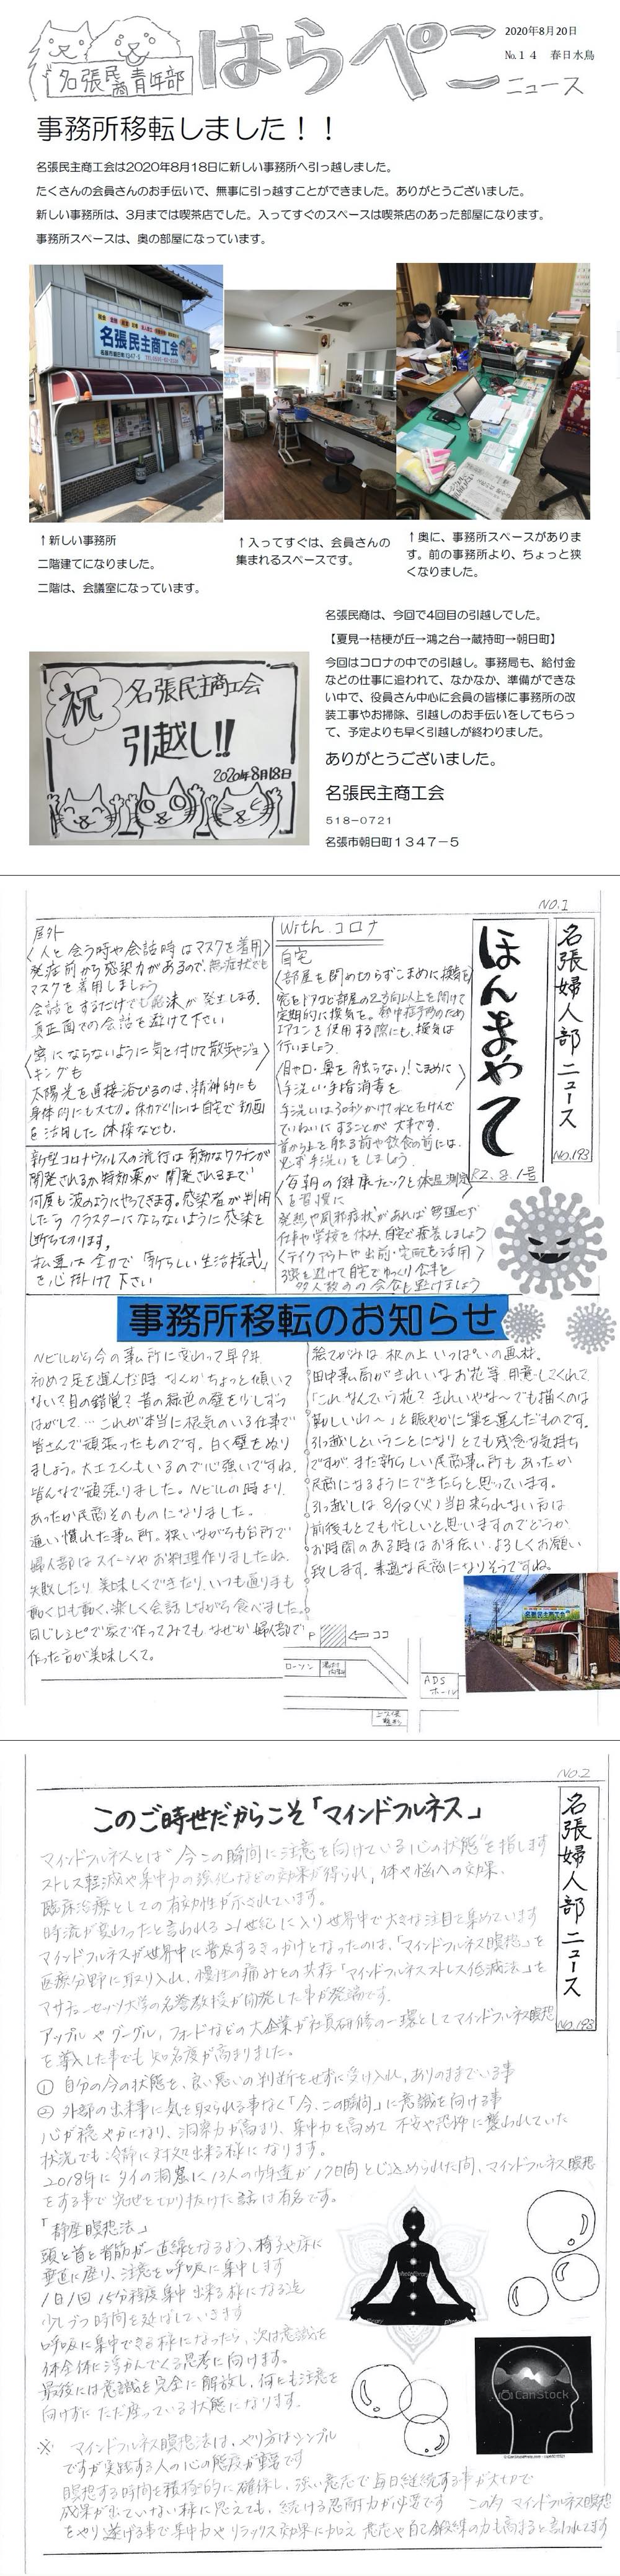 名張民商青年部
はらぺこ
ニュース
2020年8月20日
№14　春日水鳥
事務所移転しました！！
名張民主商工会は2020年8月18日に新しい事務所へ引っ越しました。
たくさんの会員さんのお手伝いで、無事に引っ越すことができました。ありがとうございました。
新しい事務所は、3月までは喫茶店でした。入ってすぐのスペースは喫茶店のあった部屋になります。
事務所スペースは、奥の部屋になっています。
名張民主商工会
↑新しい事務所
二階建てになりました。
二階は、会議室になっています。
↑入ってすぐは、会員さんの
集まれるスペースです。
↑奥に、事務所スペースがありま
す。前の事務所より、ちょっと狭
くなりました。
名張民商は、今回で4回目の引越しでした。
【夏見→桔梗が丘→鴻之台→蔵持町→朝日町】
今回はコロナの中での引越し。事務局も、給付金
などの仕事に追われて、なかなか、準備ができな
い中で、役員さん中心に会員の皆様に事務所の改
装工事やお掃除、引越しのお手伝いをしてもらっ
て、予定よりも早く引越しが終わりました。
ありがとうございました。
名張民主商工会
518－0721
名張市朝日町１３４７－５
祝
名張民主商工会
引越し!!
2020年8月18日
NO.1
名張婦人部ニュース
No.193
ほんまやて
R2.8.1号
With.コロナ
自宅
〈部屋を閉め切らずこまめに換気を〉
窓をドアなど部屋の2方向以上を開けて
定期的に換気を。熱中症予防のため
エアコンを使用する際にも、換気は
行いましょう
〈目や口・鼻を触らない！こまめに
手洗い・手指消毒を〉
手洗いは30秒かけて水と石けんで
ていねいにすることが大事です。
首から上を触る前や飲食の前には、
必ず手洗いをしましょう。
〈毎朝の健康チェックと体温測定
を習慣に〉
発熱や風邪症状があれば無理せず
仕事や学校を休み、自宅で療養しましょう
〈テイクアウトや出前・宅配を活用〉
3密を避けて自宅でゆっくり食事を
多人数での会食を避けましょう
屋外
〈人と会う時や会話時はマスクを着用〉
発症前から感染力があるので、無症状でも
マスクを着用しましょう
会話をするだけでも飛沫が発生します。
真正面での会話を避けて下さい
〈密にならないように気を付けて散歩やジョ
ギングを〉
太陽光を直接浴びるのは、精神的にも
身体的にも大切。体力づくりには自宅で動画
を活用した体操なども。
新型コロナウィルスの流行は有効なワクチンが
開発されるか特効薬が開発されるまで
何度も波のようにやってきます。感染者が判明
したら クラスターにならないように感染を
断ち切ります。
私達は全力で「新らしい生活様式」
を心掛けて下さい
事務所移転のお知らせ
Nビルから今の事ム所に変わって早9年
初めて足を運んだ時 なんかちょっと傾いて
ない？目の錯覚？昔の緑色の壁を少しずつ
はがして… これが本当に根気のいる仕事で
皆さんで頑張ったものです。白く壁をぬり
ましょう。大工さんもいるので心強いですね。
皆んなで頑張りました。Nビルの時より
あったか民商そのものになりました。
通い慣れた事ム所。狭いながらも台所で
婦人部はスイーツやお料理作りましたね。
失敗したり、美味しくできたり、いつも通り手も
動く口も動く、楽しく会話しながら食べました。
同じレシピで家で作ってみても なぜか婦人部で
作った方が美味しくて。
絵てがみは机の上いっぱいの画材。
田中事ム局がきれいなお花等、用意してくれて
「これなんていう花？きれいやな〜でも描くのは
難しいわ〜」と賑やかに筆を運んだものです。
引っ越しということになりとても残念な気持ち
ですが また新らしい民商事ム所もあったか
民商になるようにできたらと思っています。
引っ越しは 8/18(火) 当日来られない方は
前後もとても忙しいと思いますのでどうか
お時間のある時はお手伝い、よろしくお願い
致します。素適な民商になりそうですね。
P
ココ
ローソン
ADS
ホール
NO.2
名張婦人部ニュース
No.193
このご時世だからこそ「マインドフルネス」
マインドフルネスとは"今この瞬間に注意を向けている心の状態"を指します
ストレス軽減や集中力の強化などの効果が得られ、体や悩への効果、
臨床治療としての有効性が示されています。
時流が変わったと言われる21世紀に入り世界中で大きな注目を集めています
マインドフルネスが世界中に普及するきっかけとなったのは、「マインドフルネス瞑想」を
医療分野に取り入れ、慢性の痛みとの共存「マインドフルネスストレス低減法」を
マサチューセッツ大学の名誉教授が開発した事が発端です。
アップルやグーグル、フォードなどの大企業が社員研修の一環としてマインドフルネス瞑想
を導入した事でも知名度が高まりました。
① 自分の今の状態を、良い悪いの判断をせずに受け入れ、ありのままでいる事
② 外部の出来事に気を取られる事なく「今、この瞬間」に意識を向ける事
心が穏やかになり、洞察力が高まり、集中力を高めて 不安や恐怖に襲われていた
状況でも冷静に対処出来る様になります。
2018年にタイの洞窟に13人の少年達が17日間とじ込められた間、マインドフルネス瞑想
をする事で窮地を切り抜けた話は有名です。
「静座瞑想法」
頭と首と背筋が一直線となるよう、椅子や床に
垂直に座り、注意を呼吸に集中します
1日1回 15分程度集中 出来る様になる迄
少しづつ時間を延ばしていきます
呼吸に集中できる様になったら、次は意識を
体全体に浮かんでくる思考に向けます。
最後には意識を完全に解放し、何にも注意を
向けずに ただ座っている状態になります。
※ マインドフルネス瞑想法は、やり方はシンプル
ですが実践する人の心の態度が重要です
瞑想する時間を積極的に確保し、強い意志で毎日継続する事が大切で
成果が出ていない様に思えても、続ける忍耐力が必要です この為 マインドフルネス瞑想
をやり遂げる事で集中力やリラックス効果に加え 意志や自己鍛錬の力も高まると言われてます
CanStock